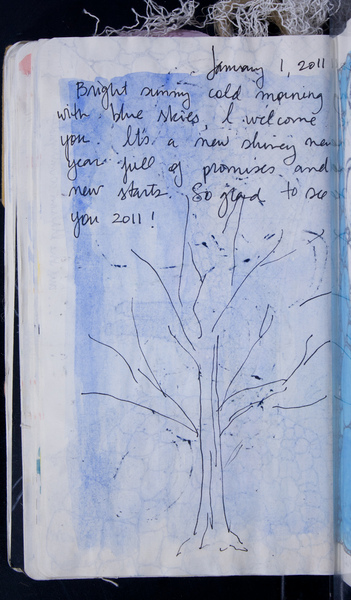 January 1, 2011
Bright sunny cold morning
with blue skies, I welcome
you. It's a new shiney new
year full of promises and
new starts. So glad to see
you 2011!